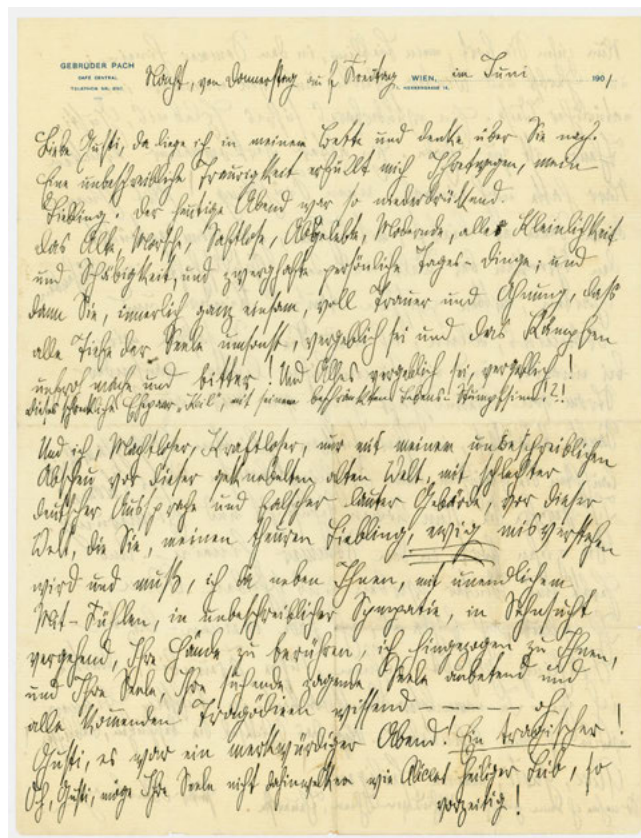 GEBRÜDER PACH
CAFÉ CENTRAL
TELEPHON NR.
Nacht, von Donnerstag auf Freitag WIEN, im Juni 1901
I. HERRENGASSE 14.
Liebe Gusti, da liege ich in meinem Bette und denke über Sie nach.
Eine unbeschreibliche Traurigkeit erfüllt mich Ihretwegen, mein
Liebling. Der heutige Abend war so niederdrückend.
Das Alte, Morsche, Saftlose, Abgelebte, Modernde, alles Kleinlichkeit
und Schäbigkeit, und zwerghafte persönliche Tages-Dinge; und
dann Sie, innerlich ganz einsam, voll Trauer und Ahnung, dass
alle Tiefe der Seele umsonst, vergeblich sei und das Kämpfen
mache und bitter! Und Alles vergeblich sei, vergeblich!
Dieses schreckliche Ehepaar, mit seinem beschränkten Lebens-Stumpfsinn!?!
Und ich, Machtloser, Kraftloser, nur mit meinem unbeschreiblichen
Abscheu vor dieser geknebelten alten Welt, mit schlechter
deutscher Aussprache und falscher lauter Gebärde, vor dieser
Welt, die Sie, meinen theuren Liebling, ewig misverstehen
wird und muß, ich da neben Ihnen, mit unendlichem
Mit-Fühlen, in unbeschreiblicher Sympatie, in Sehnsucht
vergehend, Ihre Hände zu berühren, ich hingezogen zu Ihnen,
und Ihre Seele, Ihre suchende zagende Seele anbetend und
alle kommenden Tragödieen wissend — — — — — oh
Gusti, es war ein merkwürdiger Abend! Ein tragischer!
Oh, Gusti, möge Ihre Seele nicht dahinwelken wie heiliger Leib, so
vorzeitig!